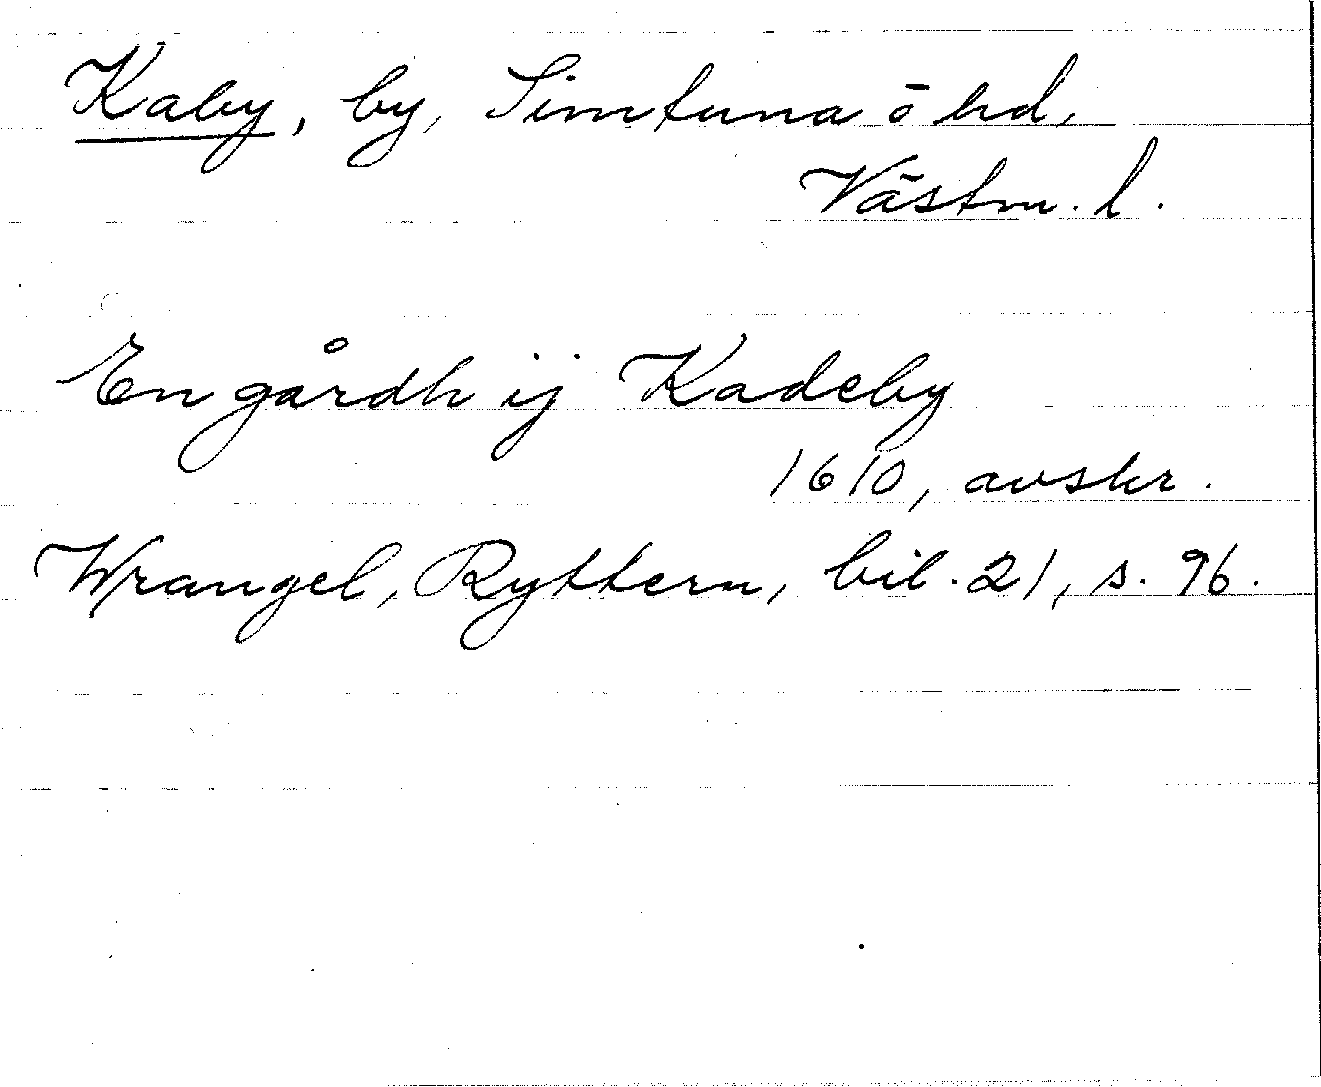 Kaby, by, Simtuna ö hd,
Västm. l.
En gårdh ij Kadeby
1610, avskr.
Wrangel, Ryttern, bil. 21, s. 96.